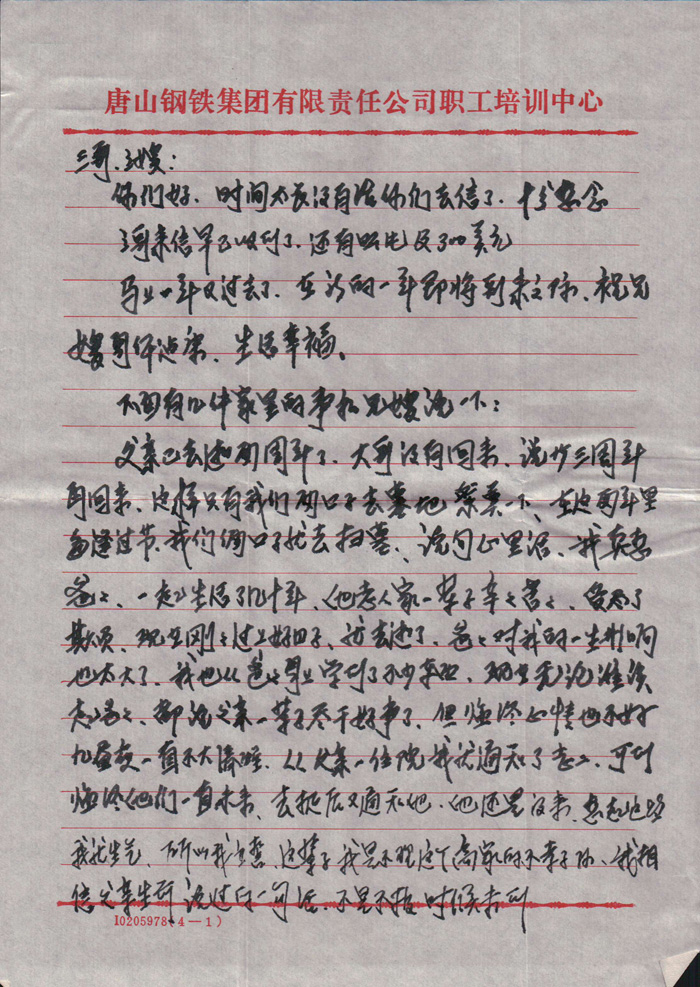 唐山钢铁集团有限责任公司职工培训中心
三哥、三嫂：
你们好。时间太长没有给你们去信了，十分想念
三哥来信早已收到了，还有照片及300美元
马上一年又过去了，在新的一年即将到来之际，祝兄
嫂身体健康，生活幸福。
下面有几件家里的事和兄嫂说一下：
父亲已去世两周年了，大哥没有回来，说等三周年
再回来，这样只有我们两口子去墓地祭奠一下，在这两年里
每逢过节，我们俩口子就去扫墓，说句心里话，我真想
爸爸，一起生活了几十年，他老人家一辈子辛辛苦苦，受尽了
欺负，现在刚刚过上好日子，就去世了，爸爸对我的一生影响
也太大了，我也从爸爸身上学到了不少东西，现在无论谁谈
起爸爸，都说父亲一辈子尽干好事了，但 心情也不好
一直不大 ，从父亲一住院我就通知了 ，可
他们一直未来，去世后又通知他，他还是没来，想起这些
我就生气，所以我 ，这辈子我是不理这个高家的不孝子孙，我相
信父亲生前说过的一句话，不是不报时候未到
10205978(4—1)